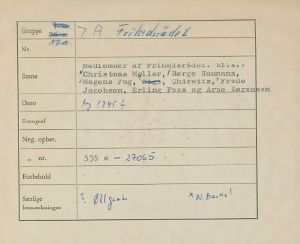 Gruppe 7 A Frihedsrådet
Nr.
Medlemmer af Frihedsrådet. bl.a.:
Emne "Christmas Møller, Børge Houmann,
Mogens Fog, Chiewitz, Frode
Jacobsen, Erling Foss og Arne Sørensen
Dato 1945
Fotograf
Neg. opbev.
„ nr. 539 e - 27065
Forbehold
Særlige
bemærkninger